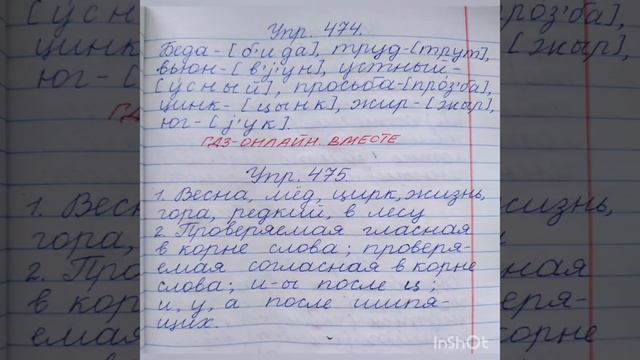 Упр. 474.
Беда-[б'ида], труд-[трут],
вьюн-[в'j'ун], устный-
[усный], просьба-[проз'ба],
цинк-[цынк], жир-[жыр],
юг-[j'ук].
ГДЗ-ОНЛАЙН ВМЕСТЕ
Упр. 475
1. Весна, мёд, цирк, жизнь,
гора, редкий, в лесу
2. Проверяемая гласная
в корне слова; проверя-
емая согласная в корне
слова; и-ы после ц;
и, у, а после шипя-
щих.
InShOt